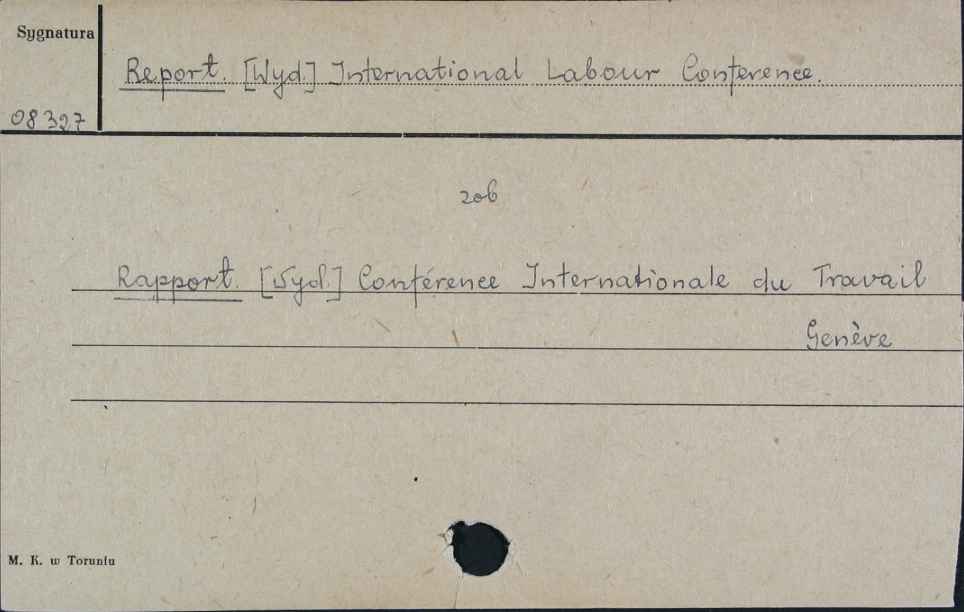 Sygnatura
Report. [Wyd.] International Labour Conference.
08327
zob
Rapport. [Wyd.] Conférence Internationale du Travail
Genève
M. K. w Toruniu